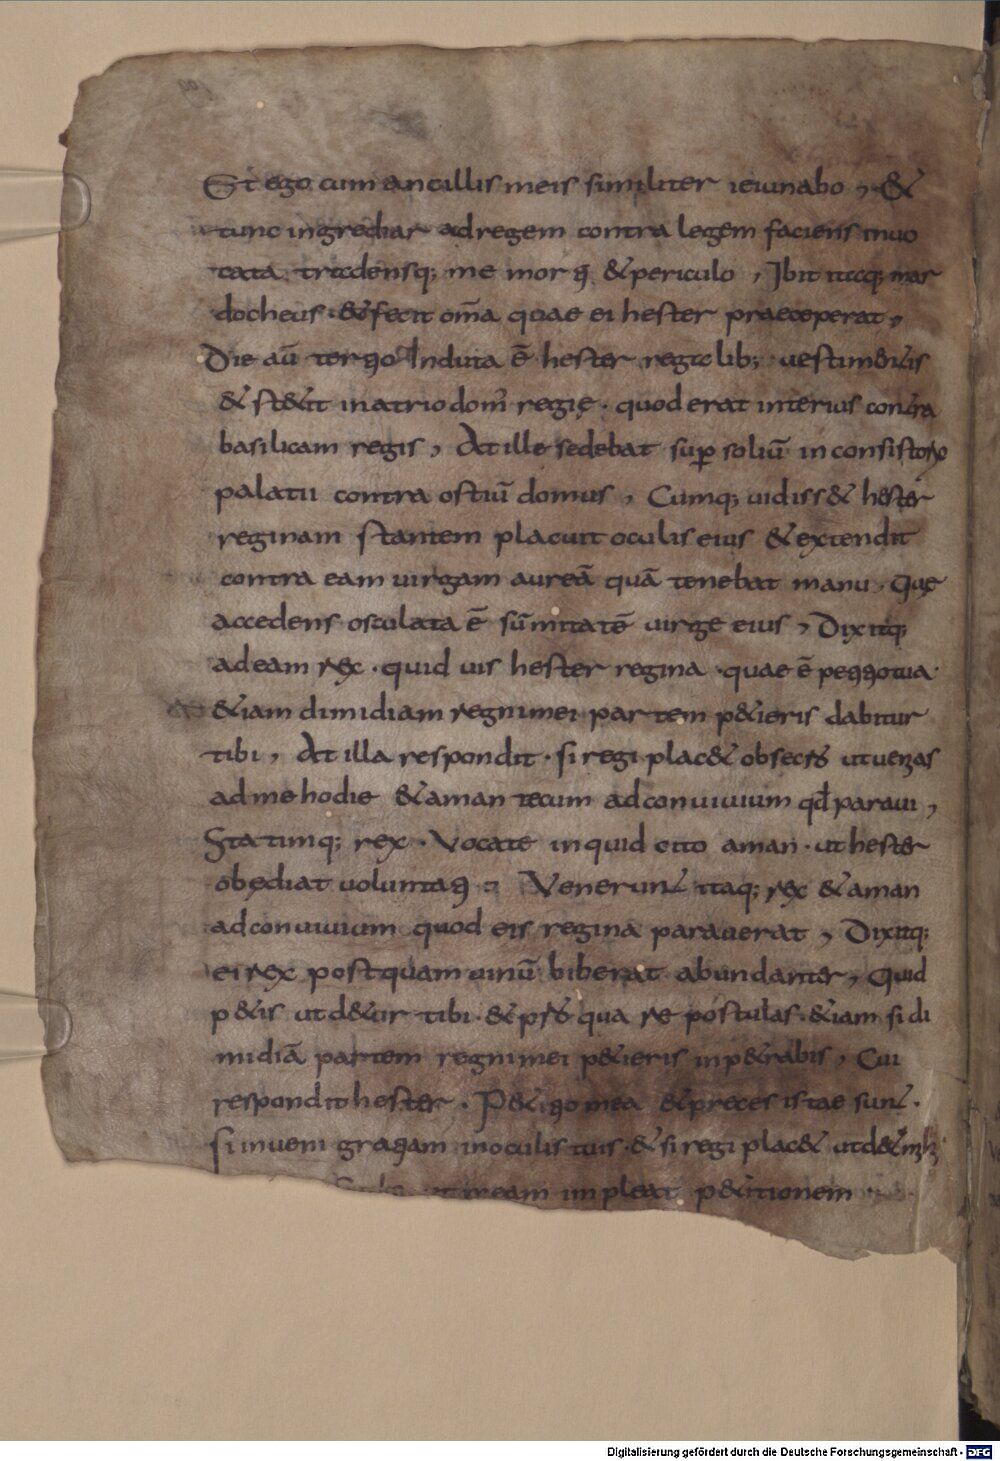 Et ego cum ancillis meis similiter ieiunabo, &
tunc ingrediar ad regem contra legem faciens inuo
cata tradensq; me morti & periculo, Ibit itaq; mar
docheus & fecit om̄a quae ei hester praeceperat,
Die aū tertio Induta ē hester regalib; uestimentis
& stetit in atrio dom̄ regię · quod erat interius contra
basilicam regis, At ille sedebat sup̱ soliū in consistorio
palatii contra ostiū domus, Cumq; uidiss& hester
reginam stantem placuit oculis eius & extendit
contra eam uirgam aureā quā tenebat manu · Quę
accedens osculata ē sūmitatē uirge eius, Dixitq;
ad eam rex · quid uis hester regina · quae ē petitio tua ·
&iam dimidiam regni mei partem p&ieris dabitur
tibi, At illa respondit · si regi plac& obsecro ut uenias
ad me hodie & aman tecum ad conuiuium qđ paraui,
Statimq; rex · Vocate inquid cito aman · ut hester
obędiat uoluntati Venerunt itaq; rex & aman
ad conuiuium quod eis regina parauerat, Dixitq;
ei rex postquam uinū biberat abundanter, Quid
p&is ut d&ur tibi · & pro qua re postulas · &iam si di
midiā partem regni mei p&ieris inp&rabis, Cui
respondit hester · P&itio mea & preces istae sunt ·
si inueni gratiam in oculis tuis · & si regi plac& ut det mihi
ut meam impleat p&itionem
Digitalisierung gefördert durch die Deutsche Forschungsgemeinschaft - DFG